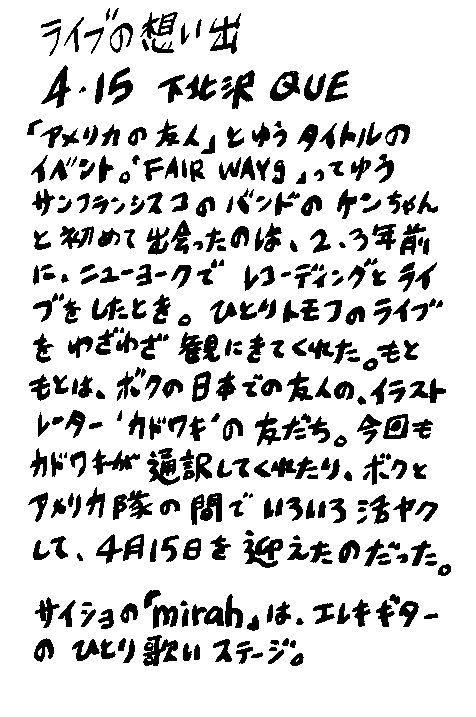 ライブの想い出
4・15 下北沢 QUE
「アメリカの友人」とゆうタイトルの
イベント。「FAIR WAYS」ってゆう
サンフランシスコのバンドのケンちゃん
と初めて出会ったのは、2、3年前
に、ニューヨークで レコーディングとライ
ブをしたとき。ひとりトモフのライブ
を わざわざ 観にきてくれた。もと
もとは、ボクの日本での友人の、イラスト
レーター 'カドワキ'の友だち。今回も
カドワキが 通訳してくれたり、ボクと
アメリカ隊の間で いろいろ活ヤク
して、4月15日を迎えたのだった。
サイショの「mirah」は、エレキギター
の ひとり歌い ステージ。